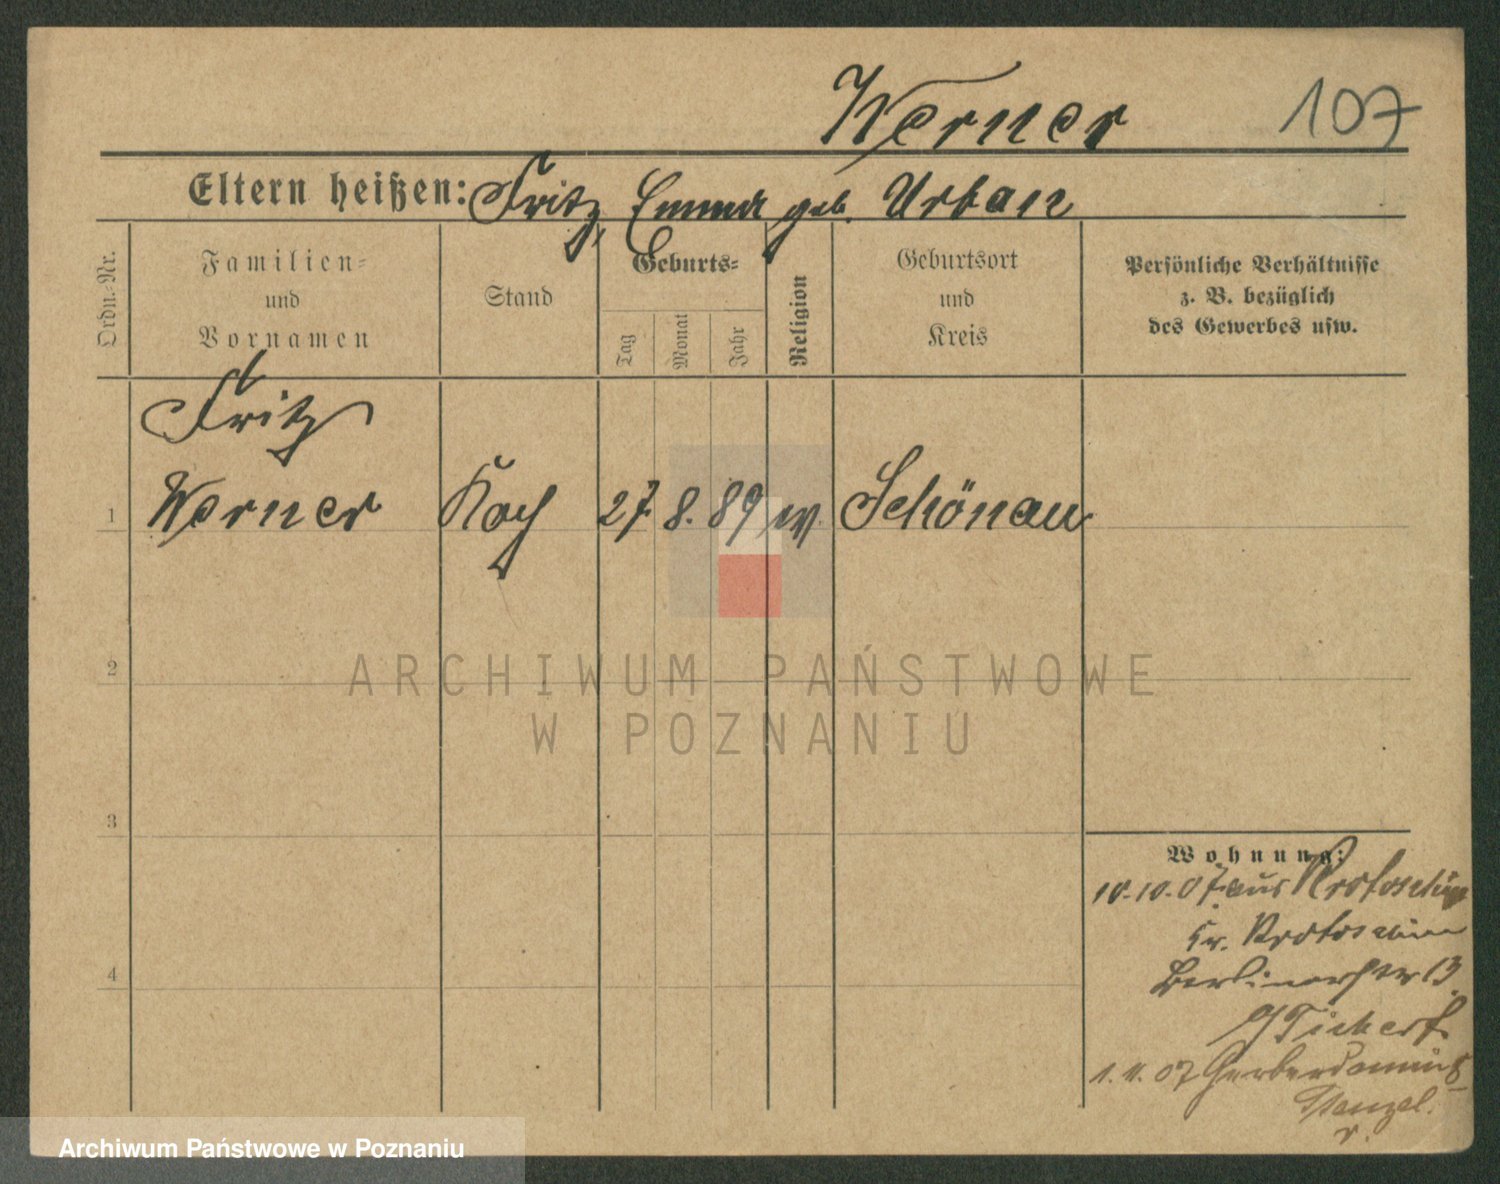 Werner 107
Eltern heißen: Fritz, Emma geb. Urban
Ordn.-Nr.
Familien-
und
Vornamen
Stand
Geburts-
Tag
Monat
Jahr
Religion
Geburtsort
und
Kreis
Persönliche Verhältnisse
z. B. bezüglich
des Gewerbes usw.
Fritz
1 Werner Koch 27. 8. 89 Schönau
2
3
4
Wohnung:
10.10.07. aus Krotoschin
Kr. Krotoschin
Berlinerstr 13.
1.11.07
ARCHIWUM PAŃSTWOWE
W POZNANIU
Archiwum Państwowe w Poznaniu